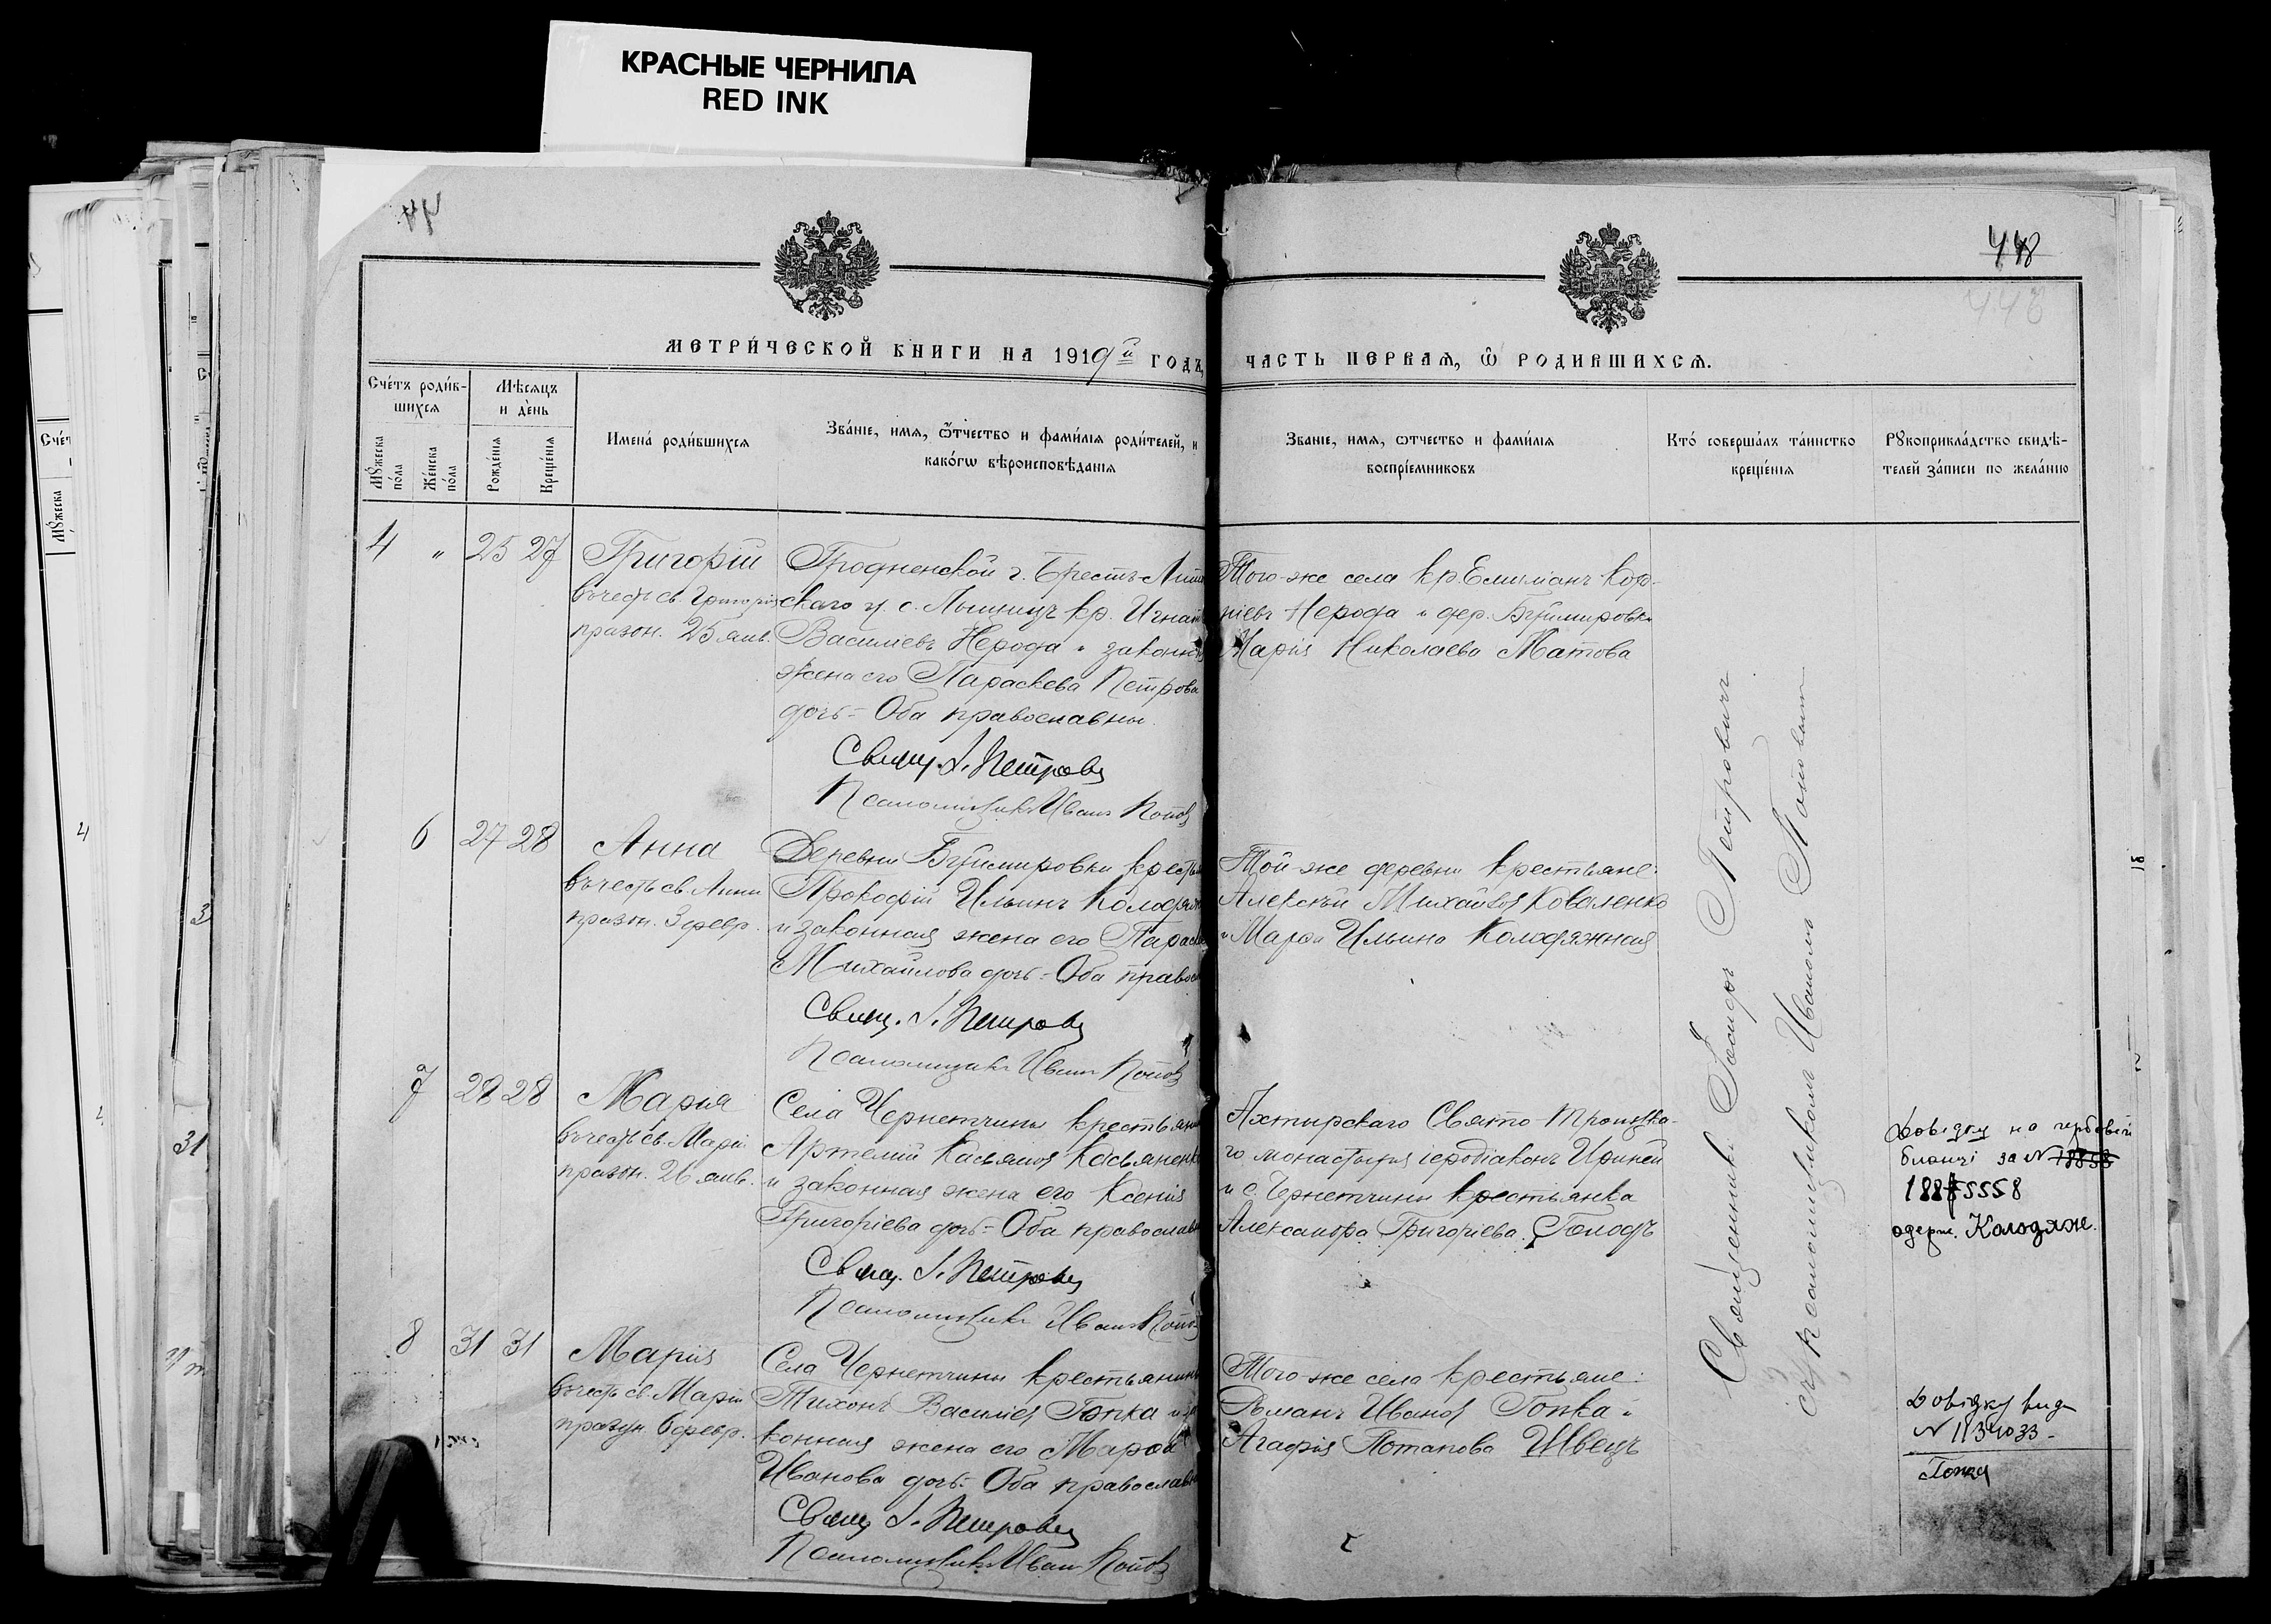 КРАСНЫЕ ЧЕРНИЛА
RED INK
448
448
МЕТРИ́ЧЕСКОЙ КНИГИ НА 1919й ГОДЪ,
ЧАСТЬ ПЕРВАЯ, Ѽ РОДИВШИХСѦ.
Сче́тъ роди́в-
шихсѧ
Мꙋ́жеска по́ла
Же́нска по́ла
Мѣ́сѧцъ
и де́нь
Рожде́нїѧ
Креще́нїѧ
Имена́ роди́вшихсѧ
Зва́нїе, имѧ, ѻ҆́тчество и фами́лїѧ роди́телей, и
како́гѡ вѣроисповѣ́данїѧ
Зва́нїе, имѧ, ѻтчество и фами́лїѧ
воспрїе́мниковъ
Кто́ соверша́лъ та́инство
креще́нїѧ
Рꙋкоприкла́дство свидѣ́-
телей за́писи по жела́нїю
4 " 25 27
Григорій
въ честь св. Григорія
праздн. 25 янв.
Гродненской г. Брестъ-Лито
скаго у. с. кр. Игнат
Василіевъ Нерода и законн
жена его Параскева Петрова
дочь - Оба православны.
Свящ. І. Петров
Псаломщикъ Иванъ Попов
Того-же села кр. Кор-
ніевъ Нерода и дер. Буймировки
Марія Николаева Матова
6 27 28
Анна
въ честь св. Анны
праздн. 3 февр.
Деревни Буймировки кресть
Прокофій Ильинъ Колодяж
и законная жена его Параск
Михайлова дочь - Оба правос
Свящ. І. Петров
Псаломщикъ Иванъ Попов
Той-же деревни крестьяне:
Алексѣй Михайлов Коваленко
и Марѳа Ильина Колодяжная
7 28 28
Марія
въ честь св. Маріи
праздн. 26 янв.
Села Чернетчины крестьян
Артемій Касьянов Касьяненк
и законная жена его Ксенія
Григоріева дочь - Оба православ
Свящ. І. Петров
Псаломщикъ Иванъ Попов
Ахтырскаго Свято-Троицка-
го монастыря іеродіаконъ Ириней
и с. Чернетчины крестьянка
Александра Григоріева Голодъ
Довідку на гербовім
бланкі за №
одерж. Колодяж.
8 31 31
Марія
въ честь св. Маріи
праздн. 6 февр.
Села Чернетчины крестьянинъ
Тихонъ Василіев Гопка и за
конная жена его Марѳа
Иванова дочь - Оба православ
Свящ. І. Петров
Псаломщикъ Иванъ Попов
Того же села крестьяне:
Романъ Иванов Гопка и
Агафія Потапова Швецъ
Довідку вид
№ 1134033
Гопка
Священникъ Іосифъ Петровичъ
съ псаломщикомъ Иваномъ Поповымъ